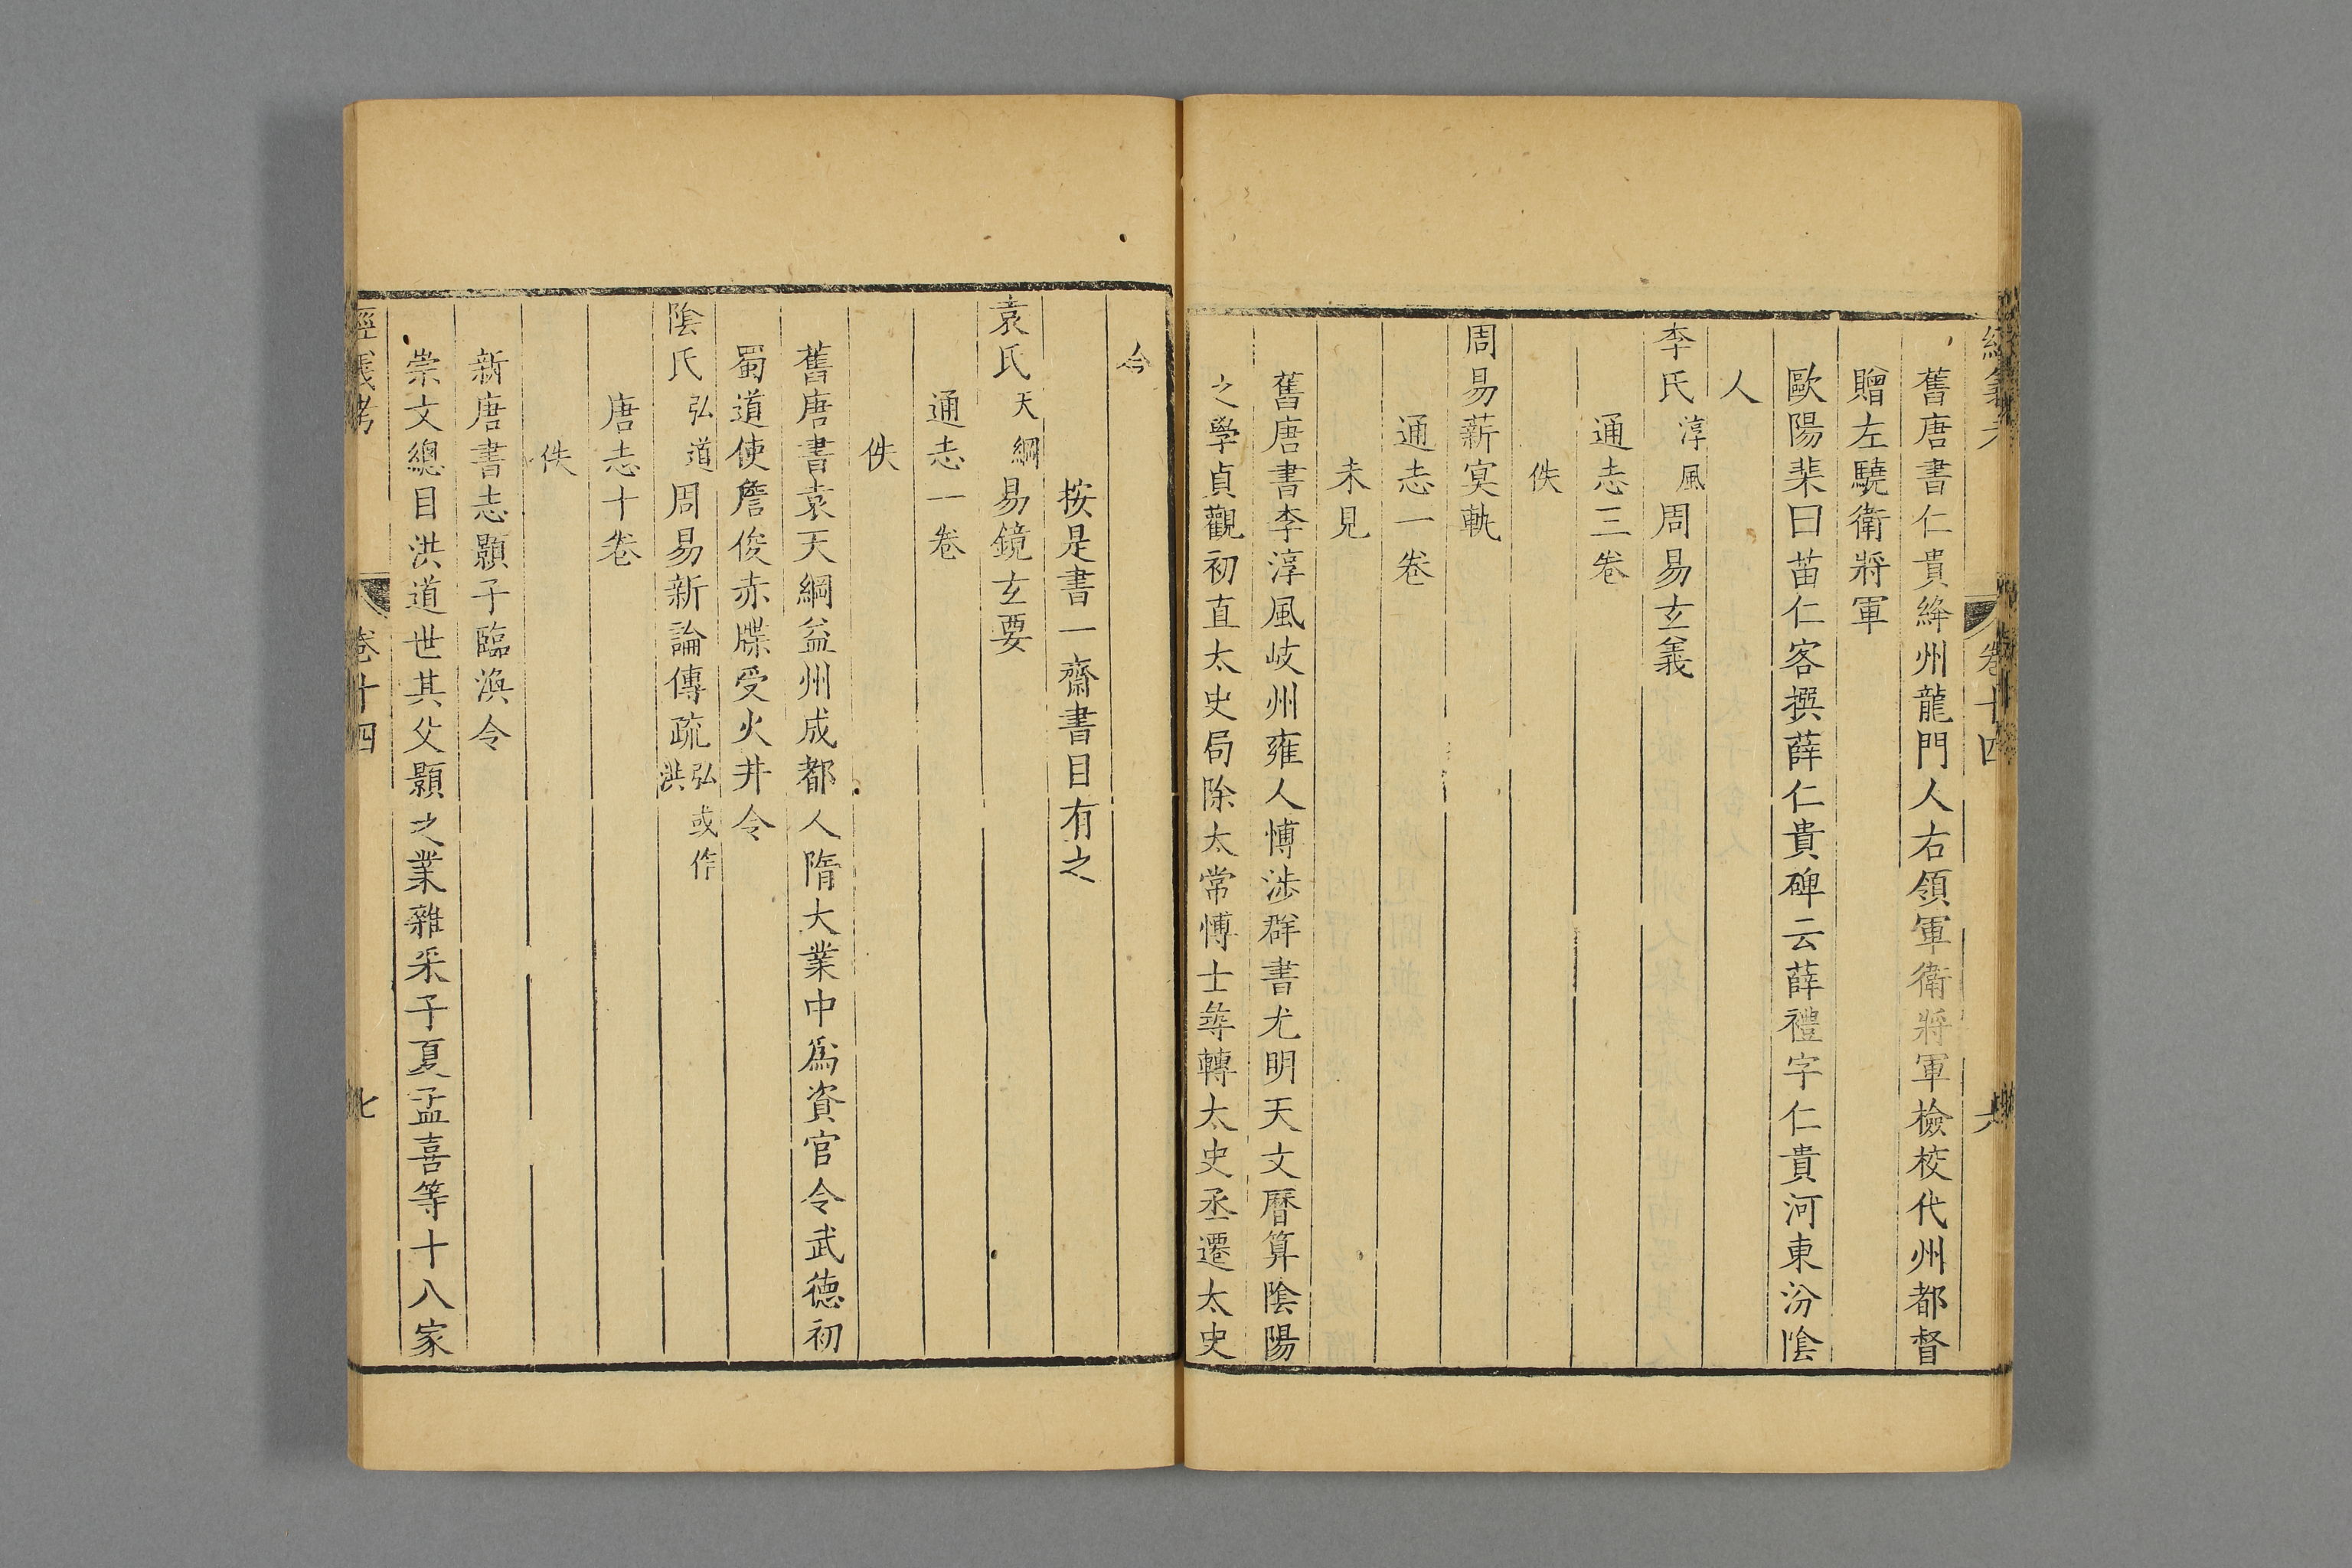 舊唐書仁貴絳州龍門人右領軍衛將軍檢校代州都督
贈左驍衛將軍
歐陽棐曰苗仁客撰薛仁貴碑云薛禮字仁貴河東汾陰
人
李氏淳風周易玄義
通志三卷
佚
周易薪冥軌
通志一卷
未見
舊唐書李淳風岐州雍人愽涉群書尤明天文曆算陰陽
之學貞觀初直太史局除太常愽士尋轉太史丞遷太史
令
按是書一齋書目有之
袁氏天綱易鏡玄要
通志一卷
佚
舊唐書袁天綱益州成都人隋大業中爲資官令武德初
蜀道使詹俊赤牒受火井令
陰氏弘道周易新論傳疏弘或作洪
唐志十卷
佚
新唐書志顥子臨渙令
崇文總目洪道世其父顥之業雜采子夏孟喜等十八家
經義考 卷十四 七